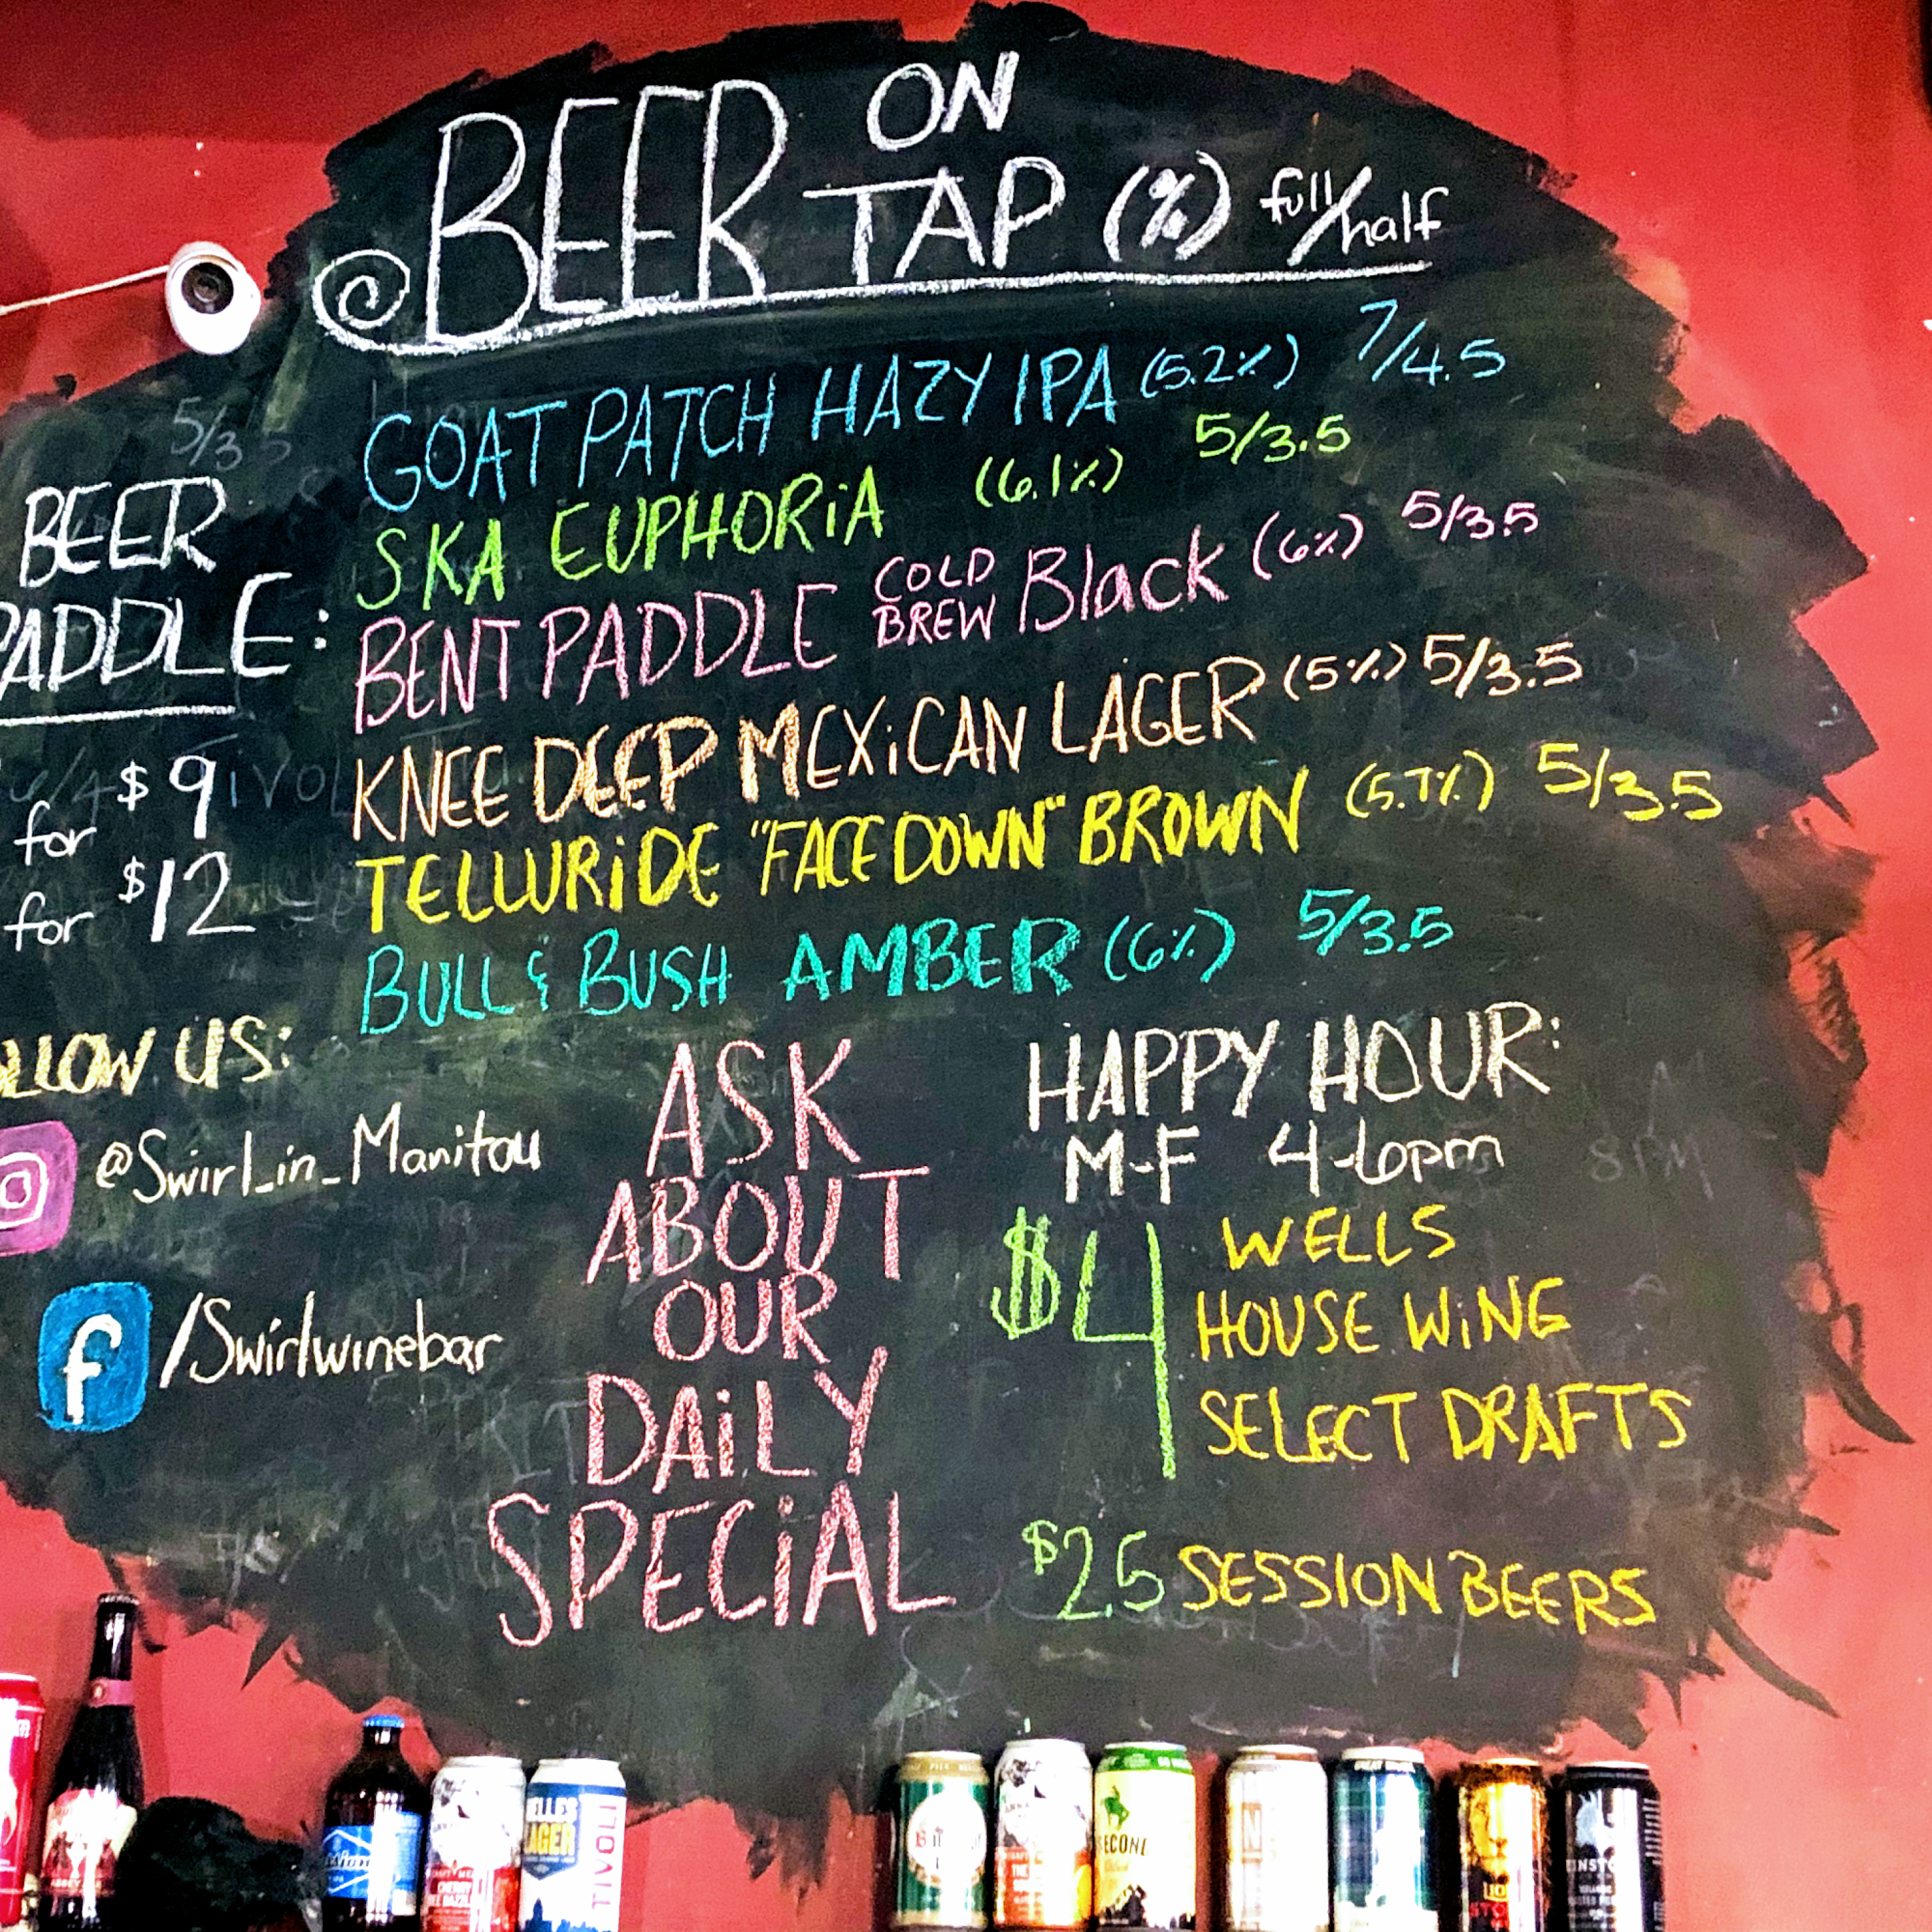 BEER ON TAP (%) full/half
GOAT PATCH HAZY IPA (5.2%) 7/4.5
SKA EUPHORiA (6.1%) 5/3.5
BENT PADDLE COLD BREW Black (6%) 5/3.5
KNEE DEEP MEXiCAN LAGER (5%) 5/3.5
TELLURiDE "FACE DOWN" BROWN (5.7%) 5/3.5
BULL & BUSH AMBER (6%) 5/3.5
5/3.5
BEER
PADDLE:
for $9
for $12
LLOW US:
@Swirl_in_Manitou
f /Swirlwinebar
ASK
ABOUT
OUR
DAiLY
SPECiAL
HAPPY HOUR:
M-F 4-6pm
8PM
$4 WELLS
HOUSE WiNE
SELECT DRAFTS
$2.5 SESSION BEERS
LAGER
TIVOLI